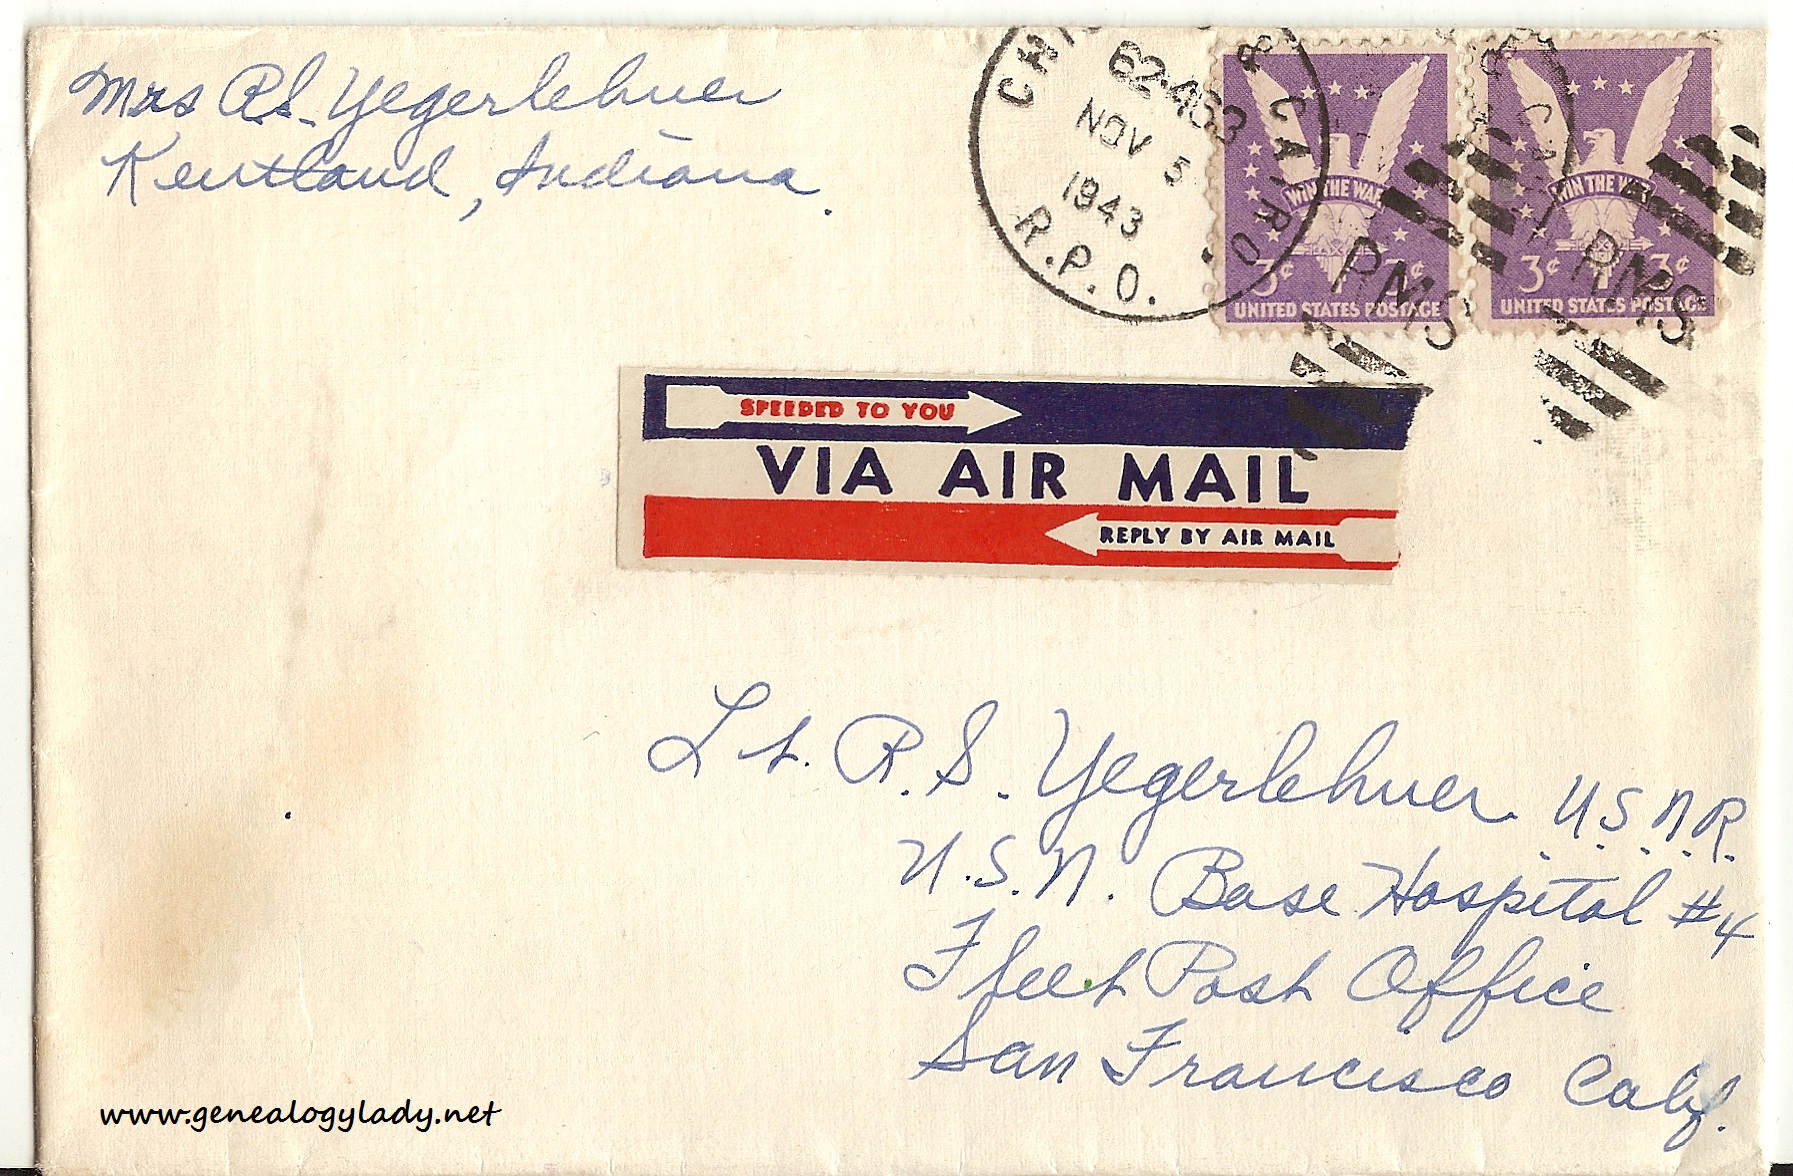 Mrs R.S. Yegerlehner
Kentland, Indiana.
62-463
NOV 5
1943
R.P.O.
WIN THE WAR
3¢ 3¢
UNITED STATES POSTAGE
RMS
WIN THE WAR
3¢ 3¢
UNITED STATES POSTAGE
RMS
SPEEDED TO YOU
VIA AIR MAIL
REPLY BY AIR MAIL
Lt. R.S. Yegerlehner U.S.N.R.
U.S.N. Base Hospital #4
Fleet Post Office
San Francisco Calif.
www.genealogylady.net